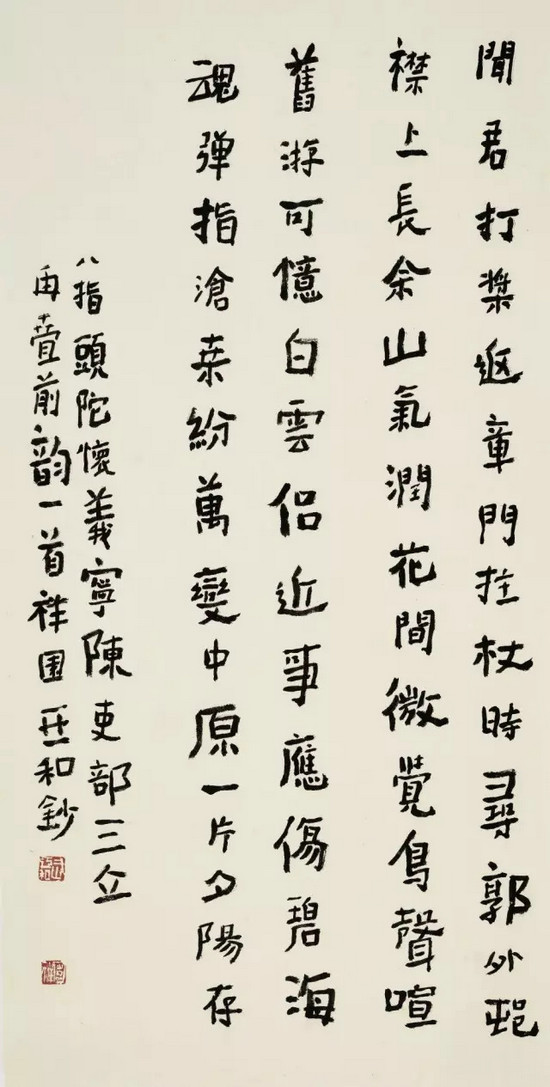 聞君打槳返章門拄杖時尋郭外邨
襟上長余山氣潤花間微覺鳥聲喧
舊游可憶白雲侶近事應傷碧海
魂彈指滄桒紛萬變中原一片夕陽存
八指頭陀懷義寧陳吏部三立
再疊前韵一首祥園和鈔